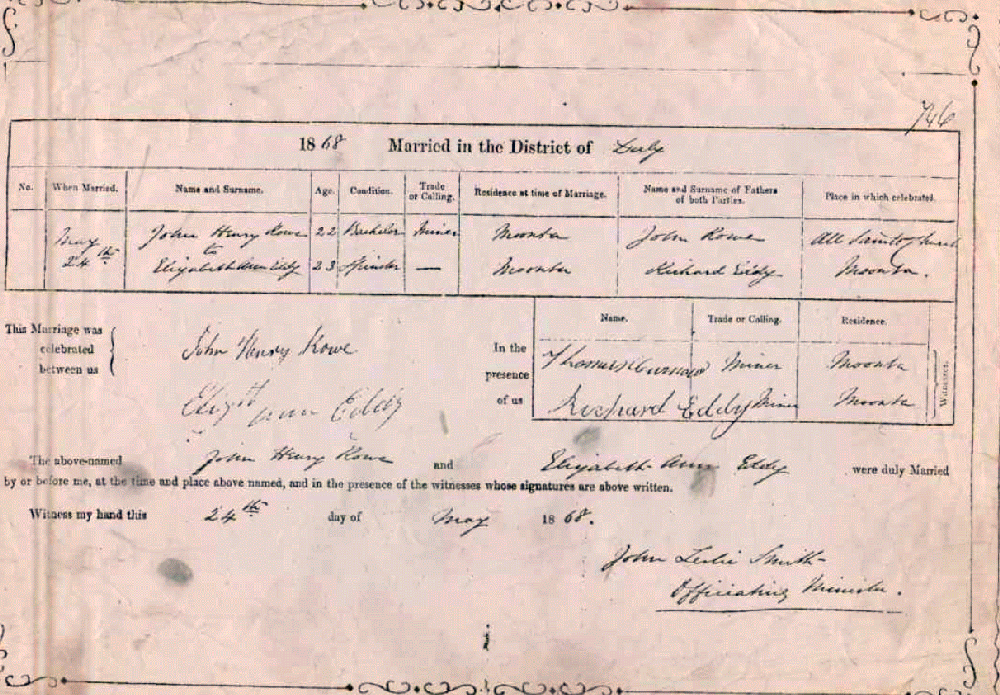 746
1868 Married in the District of Daly
No. When Married. Name and Surname. Age. Condition. Trade or Calling. Residence at time of Marriage. Name and Surname of Fathers of both Parties. Place in which celebrated.
May John Henry Rowe 22 Bachelor Miner Moonta John Rowe All Saints Church
to
24th Elizabeth Ann Eddy 23 Spinster — Moonta Richard Eddy Moonta.
Name. Trade or Calling. Residence.
This Marriage was celebrated between us
John Henry Rowe
In the presence of us
Thomas Curnow Miner Moonta
Elizth ann Eddy
Richard Eddy Miner Moonta
Witnesses.
The above-named John Henry Rowe and Elizabeth Ann Eddy were duly Married
by or before me, at the time and place above named, and in the presence of the witnesses whose signatures are above written.
Witness my hand this 24th day of May 1868.
John Leslie Smith
Officiating Minister.